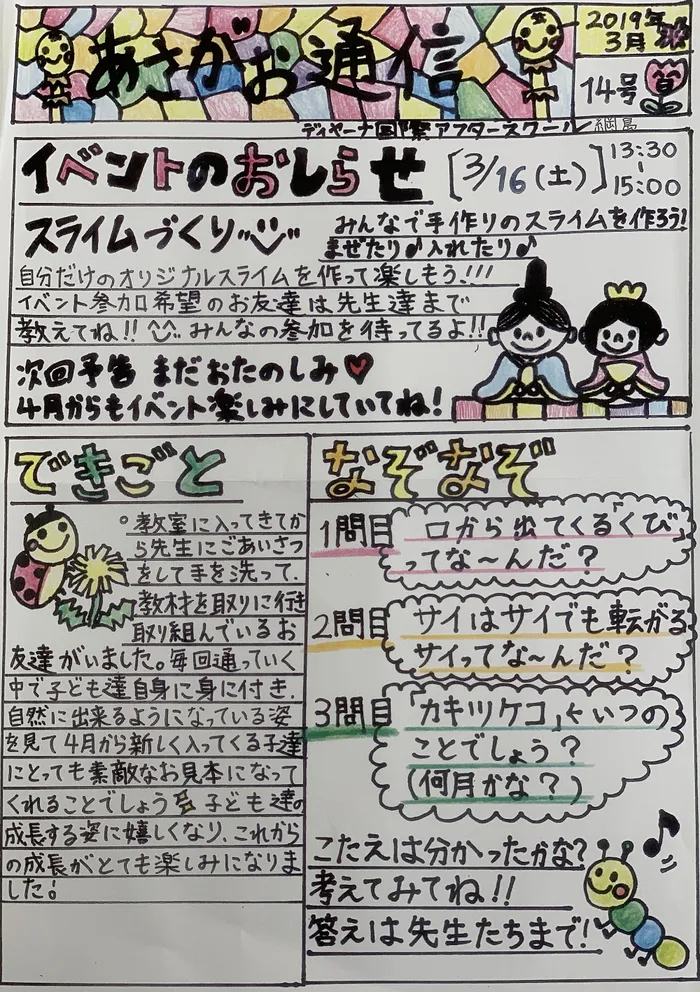 あさがお通信
2019年
3月
14号
ディヤーナ国際アフタースクール 綱島
イベントのおしらせ
[3/16(土)] 13:30
15:00
スライムづくり
みんなで手作りのスライムを作ろう!
まぜたり♪入れたり♪
自分だけのオリジナルスライムを作って楽しもう!!!
イベント参加希望のお友達は先生達まで
教えてね!! みんなの参加を待ってるよ!!
次回予告 まだおたのしみ♥
4月からもイベント楽しみにしていてね!
できごと
°教室に入ってきてか
ら先生にごあいさつ
をして手を洗って、
教材を取りに行き
取り組んでいるお
友達がいました。毎回通っていく
中で子ども達自身に身に付き、
自然に出来るようになっている姿
を見て4月から新しく入ってくる子達
にとっても素敵なお見本になって
くれることでしょう 子ども達の
成長する姿に嬉しくなり、これから
の成長がとても楽しみになりま
した!
なぞなぞ
1問目 口から出てくる「くび」
ってな〜んだ?
2問目 サイはサイでも転がる
サイってな〜んだ?
3問目 「カキツケコ」←いつの
ことでしょう?
(何月かな?)
こたえは分かったかな?
考えてみてね!!
答えは先生たちまで!